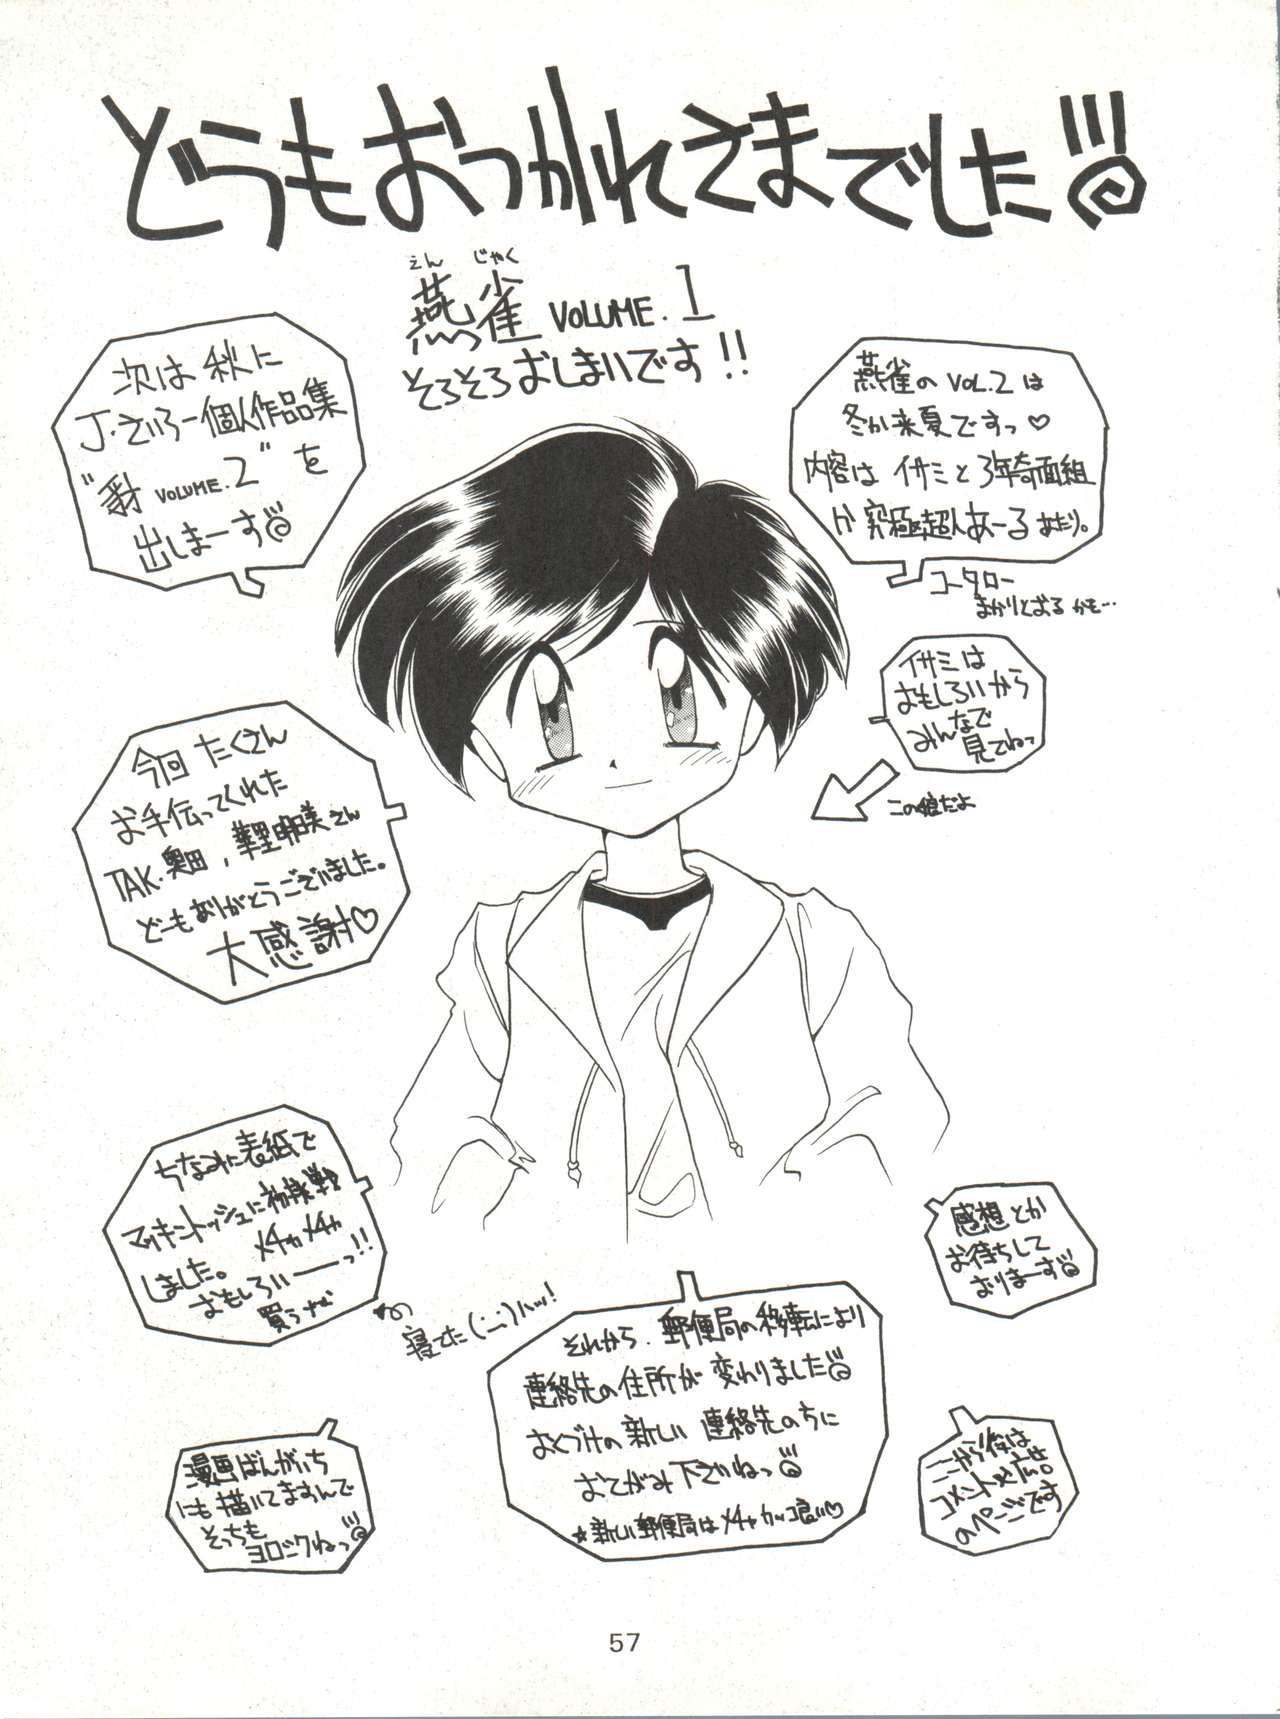 どうもおつかれさまでした!!!
えん じゃく
燕雀 VOLUME.1
そろそろおしまいです!!
次は秋に
J・さいろー個人作品集
VOLUME.2"を
出しまーす
燕雀のVOL.2は
冬か来夏ですっ♡
内容はイサミと3年奇面組
か究極超人あ〜るあたり。
コータロー
まかりとおるかも…
イサミは
おもしろいから
みんなで
見てねっ
この娘だよ
今回たくさん
お手伝ってくれた
TAK.奥田,華里明美さん
どーもありがとうございました。
大感謝♡
ちなみに表紙で
マッキントッシュに初挑戦
しました。メチャメチャ
おもしろいーーっ!!
買うぞ
寝てた(;_;)ハッ!
感想とか
お待ちして
おりまーす
それから、郵便局の移転により
連絡先の住所が変わりました
おくづけの新しい連絡先のちに
おてがみ下さいねっ
☆新しい郵便局はメチャカッコ良い♡
漫画ばんがいち
にも描いてますんで
そっちも
ヨロシクねっ
ここから後は
コメント&広告。
のページです
57